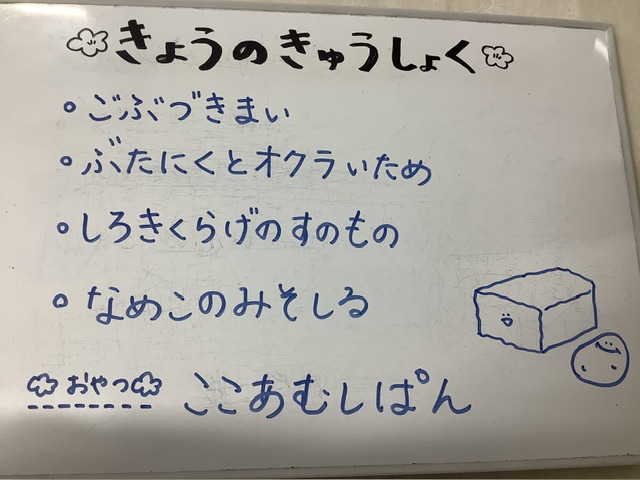 きょうのきゅうしょく
・ごぶづきまい
・ぶたにくとオクラいため
・しろきくらげのすのもの
・なめこのみそしる
おやつ ここあむしぱん